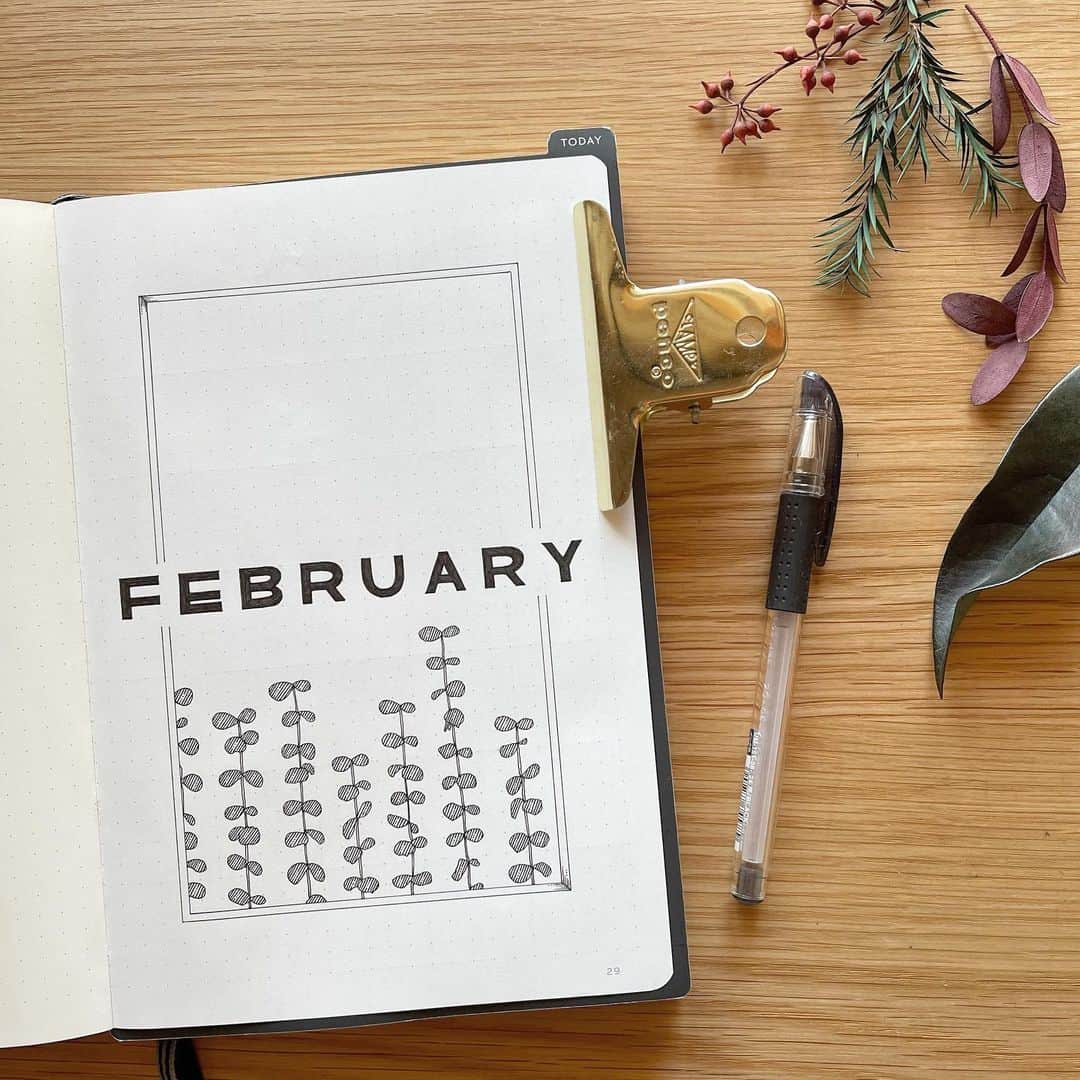 TODAY
CLAMPY
penco®
FEBRUARY
29